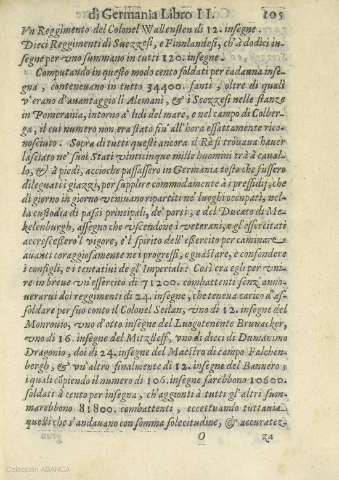 di Germania Libro II. 105
Vn Reggimento del Colonel Wallensten di 12. insegne.
Dieci Reggimenti di Suezzesi, e Finnlandesi, ch'à dodici in-
segne per vno summano in tutti 120. insegne.
Computando in questo modo cento soldati per cadauna inse-
gna, conteneuano in tutto 34400. fanti, oltre di quali
v'erano d'auantaggio li Alemani, & i Scozzesi nelle stanze
in Pomerania, intorno a' lidi del mare, e nel campo di Colber-
ga, il cui numero non era stato fin' all'hora essattamente rico-
nosciuto. Sopra di tutti questi ancora il Rè si trouaua hauer
lasciato ne' suoi Stati vinticinque mille huomini trà à caual-
lo, & à piedi, accioche passassero in Germania tosto che fussero
dileguati i giazzi, per supplire commodamente à i pressidij, che
di giorno in giorno veniuano ripartiti ne' luoghi occupati, nel-
la custodia di passi principali, de' porti, e del Ducato di Me-
kelenburgh, assegno che vscendone i veterani, negl'essercitati
accrescessero l'vigore, e'l spirito dell'essercito per caminare
auanti coraggiosamente ne i progressi, e guastare, e confondere
i consigli, e i tentatiui de gl'Imperiali: Così era egli per vni-
re in breue vn'essercito di 71200. combattenti senz'anno-
uerarui doi reggimenti di 24. insegne, che teneua carico d'as-
soldare per suo conto il Colonel Sedan, vno di 12. insegne del
Monrouio, vno d'otto insegne del Luogotenente Brunacker,
vno di 16. insegne del Mitzlass, vno di dieci di Dumeuno
Dragonio, doi di 24. insegne del Maestro di campo Falchen-
bergh, & vn'altro finalmente di 12. insegne del Bannero;
i quali cõpiendo il numero di 106. insegne farebbono 10600.
soldati à cento per insegna, ch'aggionti à tutti gl'altri sum-
marebbono 81800. combattenti, eccettuando tuttauia
quelli che s'andauano con somma solecitudine, & accuratez-
O za
Colección ABANCA